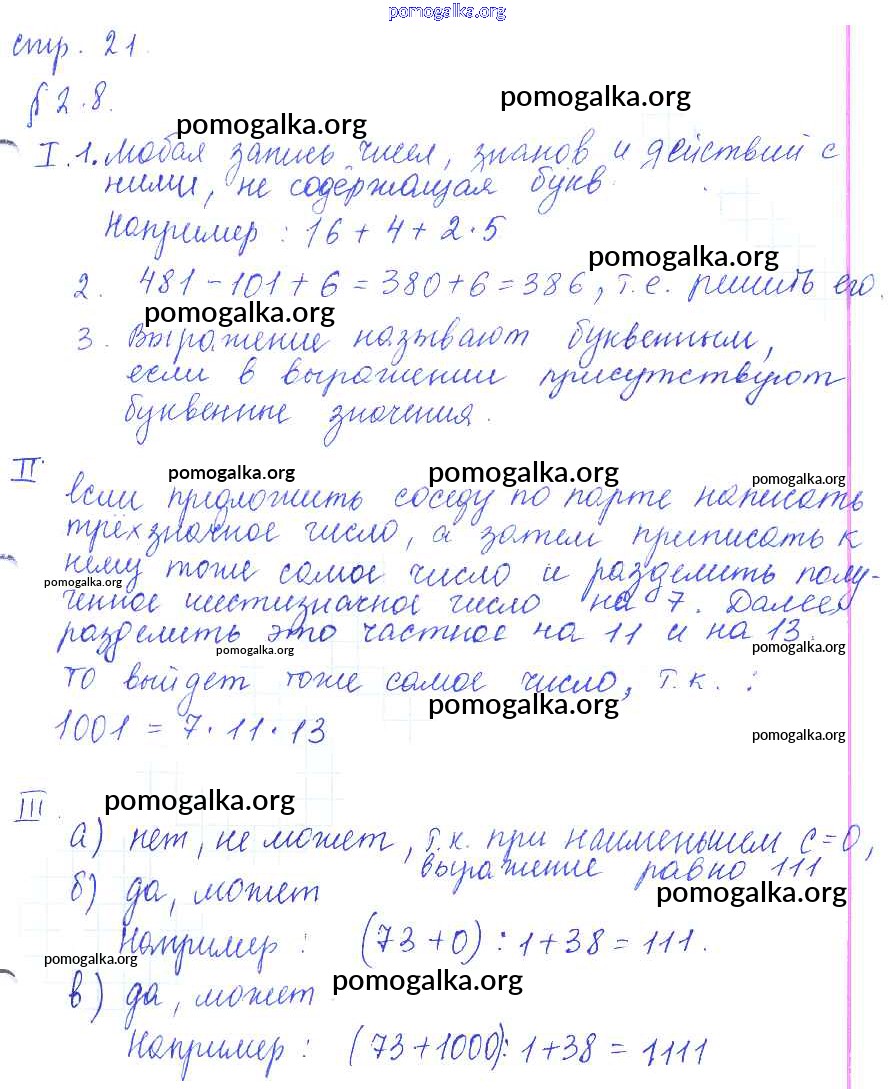 pomogalka.org
стр. 21.
§ 2.8.
pomogalka.org
pomogalka.org
I. 1. Любая запись чисел, знаков и действий с
ними, не содержащая букв.
Например : 16 + 4 + 2 · 5
pomogalka.org
2. 481 - 101 + 6 = 380 + 6 = 386, т.е. решить его.
pomogalka.org
3. Выражение называют буквенным,
если в выражении присутствуют
буквенные значения.
II
pomogalka.org pomogalka.org pomogalka.org
Если предложить соседу по парте написать
трёхзначное число, а затем приписать к
нему тоже самое число и разделить полу-
pomogalka.org
ченное шестизначное число на 7. Далее,
разделить это частное на 11 и на 13.
pomogalka.org pomogalka.org
то выйдет тоже самое число, т.к. :
pomogalka.org
1001 = 7 · 11 · 13
pomogalka.org
III.
pomogalka.org
а) нет, не может, т.к. при наименьшем с = 0,
выражение равно 111
б) да, может
pomogalka.org
Например : (73 + 0) : 1 + 38 = 111.
pomogalka.org
pomogalka.org
в) да, может
Например : (73 + 1000) : 1 + 38 = 1111